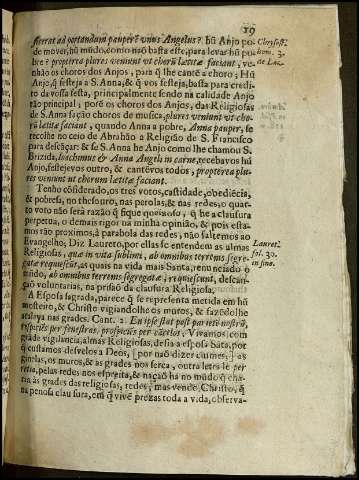 19
fferat ad portandum pauperẽ vnius Angelus? hũ Anjo po
de mover, hũ mũdo, como nam basta este, para levar hũ po-
bre? propterea plures veniunt vt chorũ lætitæ faciant, ve-
nhão os choros dos Anjos, para q̃ lhe cantẽ a choro; Hũ
Anjo, q̃ festeja a S. Anna, & q̃ vos festeja, basta para credi-
to da vossa festa, principalmente sendo na calidade Anjo
tão principal; porẽ os choros dos Anjos, das Religiosas
de S. Anna fação choros de musica, plures veniunt vt cho-
rũ lætitæ faciant; quando Anna a pobre, Anna pauper, se
recolhe no ceio de Abrahão a Religião de S. Francisco
para descãçar: & se S. Anna he Anjo como lhe chamou S.
Brizida, Ioachimus & Anna Angeli in carne, recebavos hũ
Anjo, festejevos outro, & cantẽvos todos, propterea plu-
res veniunt ut chorum lætitæ faciant.
Tenho cõsiderado, os tres votos, castidade, obediẽcia,
& pobresa, no thesouro, nas perolas, & nas redes, o quar-
to voto não serà razão q̃ fique queixoso, q̃ he a clausura
perpetua, o demais rigor na minha opinião, & pois esta-
mos tão proximos, à parabola das redes, não saltemos ao
Evangelho; Diz Laureto, por ellas se entendem as almas
Religiosas, quæ in vita sublimi, ab omnibus terrenis segre-
gatæ requiescũt, as quais na vida mais Santa, renunciado o
mũdo, ab omnibus terrenis segregatæ, requiescunt, descan-
ção voluntarias, na prisaõ da clausura Religiosa.
A Esposa sagrada, parece q̃ se representa metida em hũ
mosteiro, & Christo vigiandolhe os muros, & fazẽdolhe
atalaya nas grades. Cant. 2. En ipse stat post parietẽ nostrũ,
respiciẽs per fenestras, prospiciẽs per cãcelos; Vivamos com
grade vigilancia, almas Religiosas, desta a esposa Sãta, por
q̃ custamos desvelos a Deos, [por naõ dizer ciumes,] as
ginelas, os muros, & as grades nos serca, outra letra lè per
retia, pelas redes nos espreita, & naçaõ ha no mũdo q̃ cha-
ma às grades das religiosas, redes; mas vende Christo, q̃
na penosa clausura, em q̃ vivẽ prezas toda a vida, observa-
Chrysost.
hom. 3.
de Laz.
Lauret.
fol. 30.
in sinu.